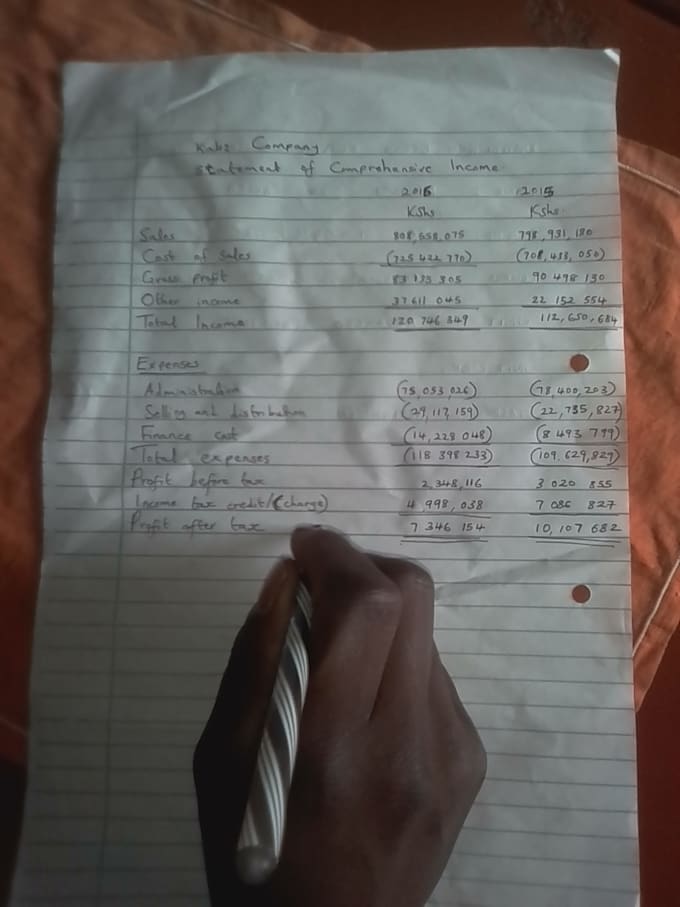 Company
Statement of Comprehensive Income
2016 2015
Kshs Kshs
Sales 808,558,075 798,931,180
Cost of Sales (725 422 770) (708,433,050)
Gross profit 83 135 305 90 498 130
Other income 37 611 045 22 152 554
Total Income 120 746 349 112,650,684
Expenses
Administration (75,053,026) (78,400,203)
Selling and distribution (29,117,159) (22,735,827)
Finance cost (14,228 048) (8 493 799)
Total expenses (118 398 233) (109,629,829)
Profit before tax 2,348,116 3 020 855
Income tax credit/(charge) 4,998,038 7 086 827
Profit after tax 7 346 154 10,107 682